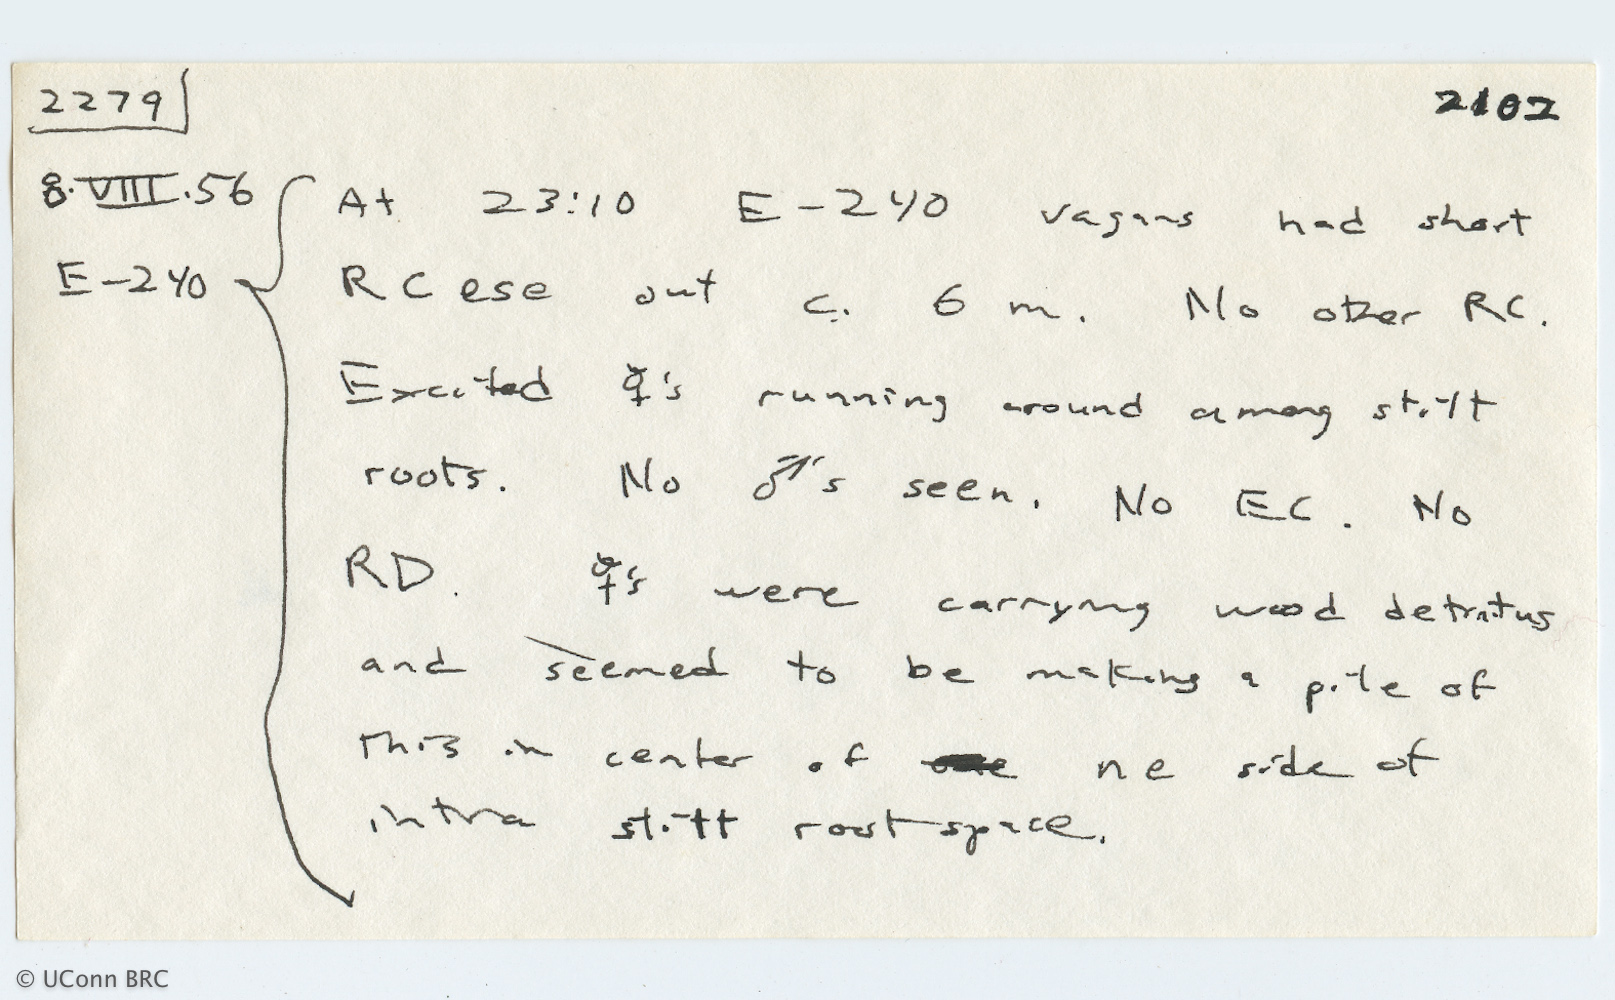 2279 2102
8.VIII.56 At 23:10 E-240 vagans had short
E-240 RC ese out c. 6 m. No other RC.
Excited ☿'s running around among stilt
roots. No ♂'s seen. No EC. No
RD. ☿'s were carrying wood detritus
and seemed to be making a pile of
this in center of ne side of
intra stilt root space.
© UConn BRC